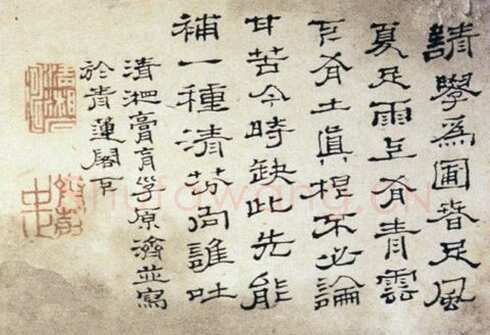 請學為圃春足風
夏足雨上有青雲
下有土真根不必論
甘苦今時缺此先能
補一種清芬向誰吐
清湘膏肓子原濟並寫
於青蓮閣下